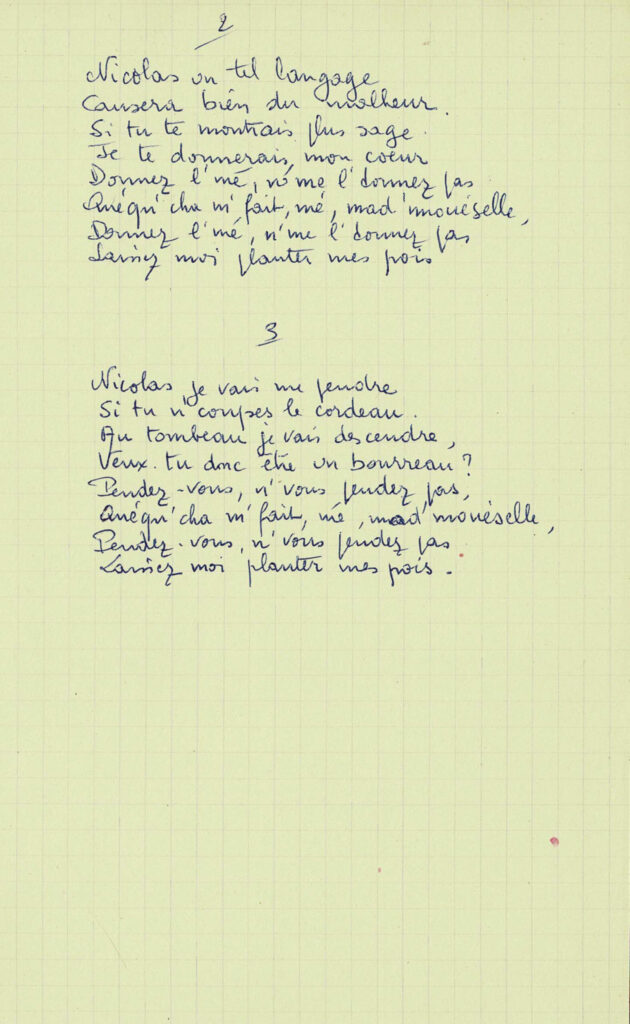 2
Nicolas un tel langage
Causera bien du malheur.
Si tu te montrais plus sage.
Je te donnerais, mon coeur
Donnez l'mé, n'me l'donnez pas
Quéqu'cha m'fait, mé, mad'mouéselle,
Donnez l'mé, n'me l'donnez pas
Laissez moi planter mes pois
3
Nicolas je vais me pendre
Si tu n'coupes le cordeau.
Au tombeau je vais descendre,
Veux-tu donc être un bourreau?
Pendez-vous, n'vous pendez pas,
Quéqu'cha m'fait, mé, mad'mouéselle,
Pendez-vous, n'vous pendez pas
Laissez moi planter mes pois.